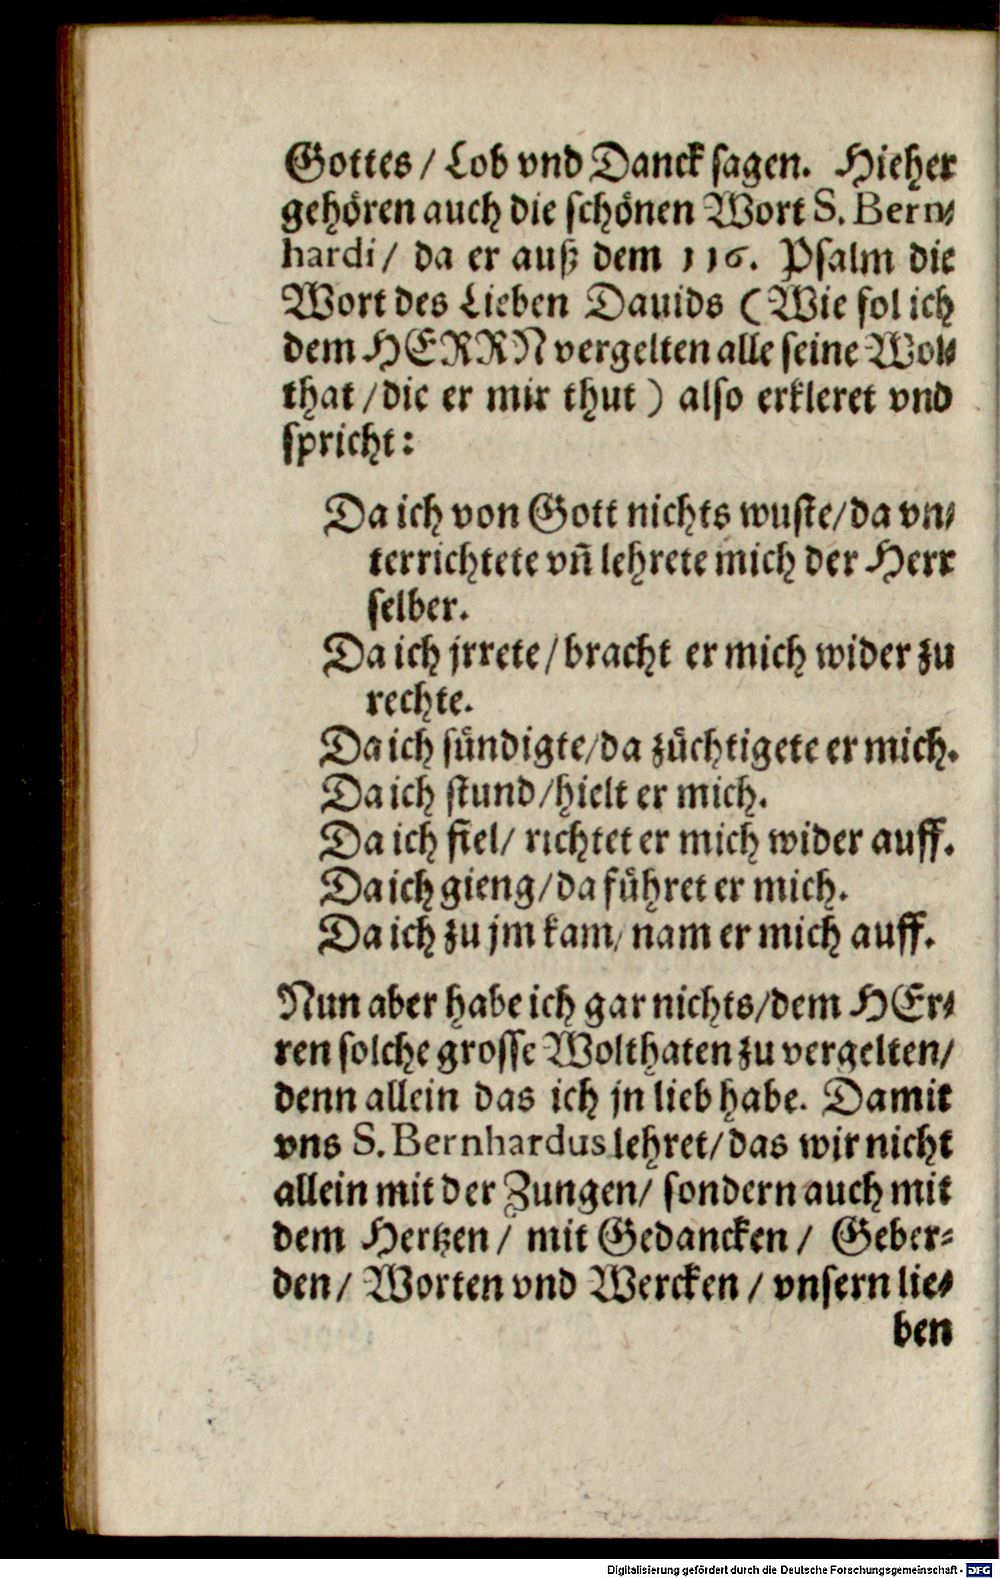 Gottes / Lob vnd Danck sagen. Hieher
gehören auch die schönen Wort S. Bern⸗
hardi / da er auß dem 116. Psalm die
Wort des Lieben Dauids (Wie sol ich
dem HERRN vergelten alle seine Wol⸗
that / die er mir thut) also erkleret vnd
spricht:
Da ich von Gott nichts wuste / da vn⸗
terrichtete vñ lehrete mich der Herr
selber.
Da ich jrrete / bracht er mich wider zu
rechte.
Da ich sündigte / da züchtigete er mich.
Da ich stund / hielt er mich.
Da ich fiel / richtet er mich wider auff.
Da ich gieng / da führet er mich.
Da ich zu jm kam / nam er mich auff.
Nun aber habe ich gar nichts / dem HEr⸗
ren solche grosse Wolthaten zu vergelten /
denn allein das ich jn lieb habe. Damit
vns S. Bernhardus lehret / das wir nicht
allein mit der Zungen / sondern auch mit
dem Hertzen / mit Gedancken / Geber⸗
den / Worten vnd Wercken / vnsern lie⸗
ben
Digitalisierung gefördert durch die Deutsche Forschungsgemeinschaft - DFG